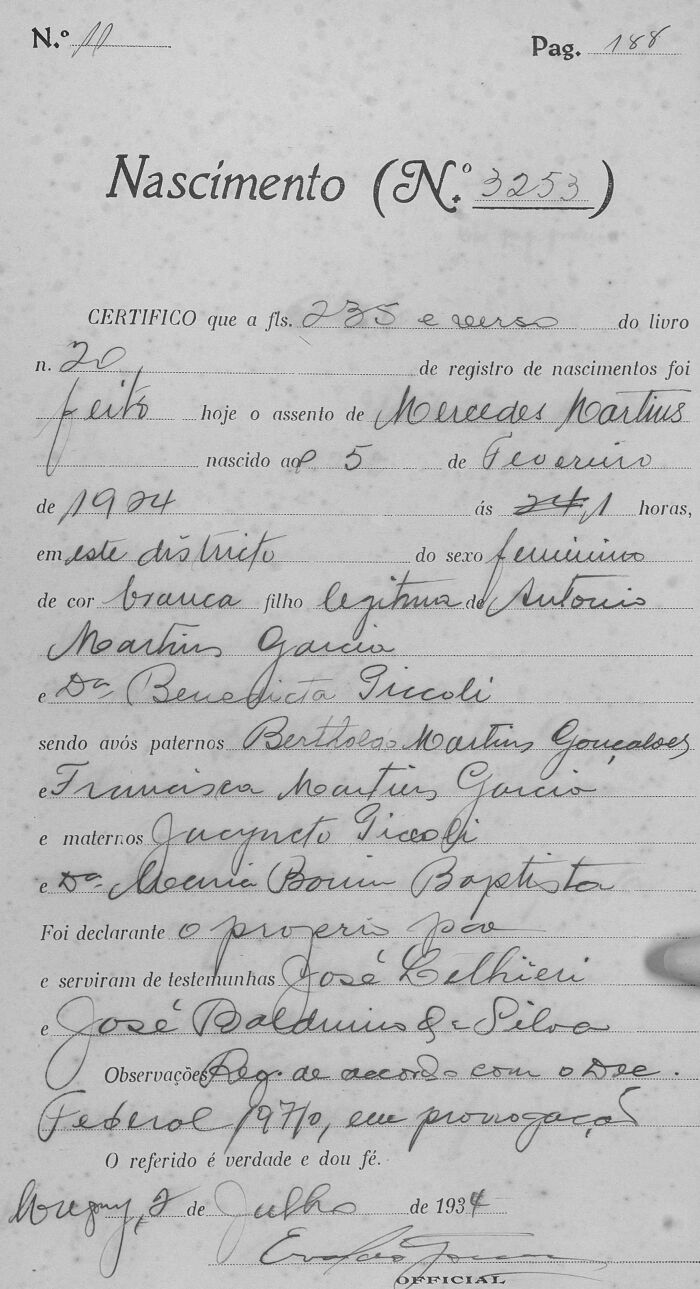 N.º 11
Pag. 188
Nascimento (N.º 3253)
CERTIFICO que a fls. 235 e verso do livro
n. 20 de registro de nascimentos foi
feito hoje o assento de Mercedes Martins
nascido aos 5 de Fevereiro
de 1924 ás 24,1 horas,
em este districto do sexo feminino
de cor branca filho legitima de Antonio
Martins Garcia
e Dª. Benedicta Piccoli
sendo avós paternos Bertholdo Martins Gonçalves
e Francisca Martins Garcia
e maternos Jacyncto Piccoli
e Dª. Maria Bonin Baptista
Foi declarante o proprio pae
e serviram de testemunhas José
e José Balduino da Silva
Observações Reg. de accordo com o Dec.
Federal 19710, em prorogação
O referido é verdade e dou fé.
2 de Julho de 1934
OFFICIAL